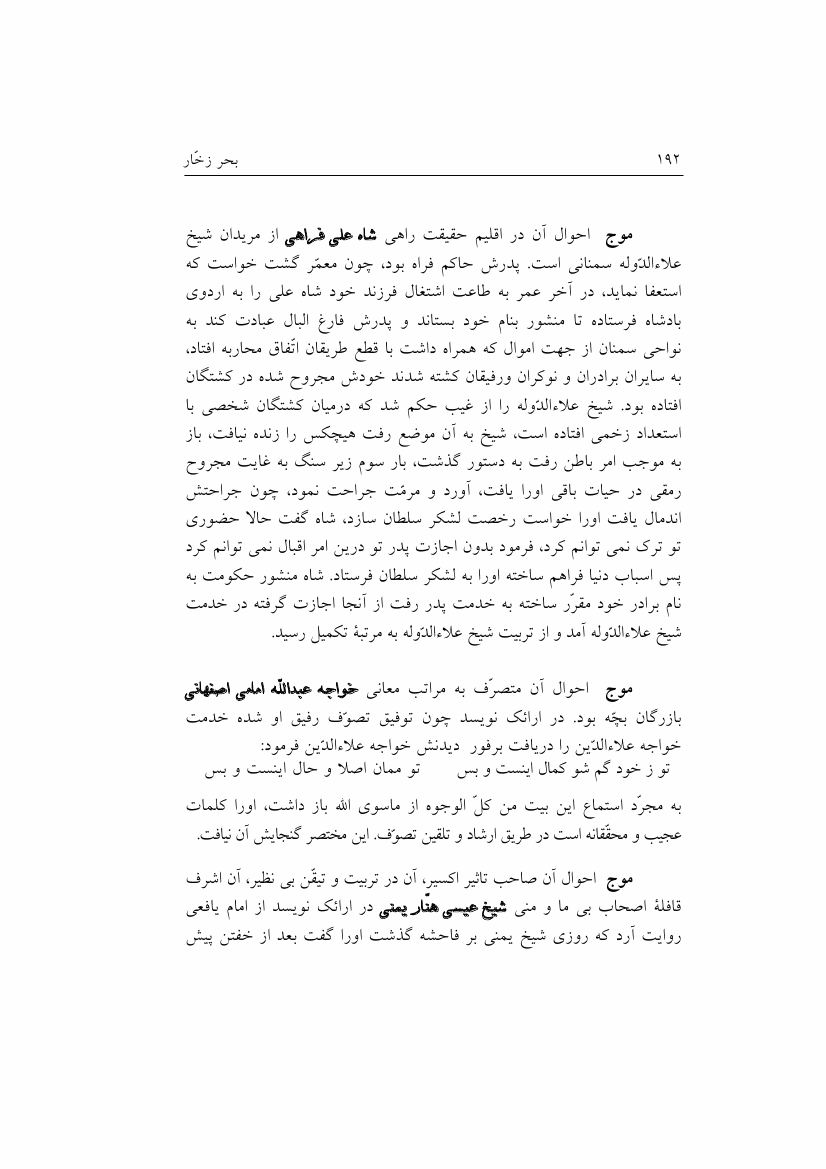 ۱۹۲ بحر زخّار
موج احوال آن در اقلیم حقیقت راهی شاه علی فراهی از مریدان شیخ
علاءالدّوله سمنانی است. پدرش حاکم فراه بود، چون معمّر گشت خواست که
استعفا نماید، در آخر عمر به طاعت اشتغال فرزند خود شاه علی را به اردوی
بادشاه فرستاده تا منشور بنام خود بستاند و پدرش فارغ البال عبادت کند به
نواحی سمنان از جهت اموال که همراه داشت با قطع طریقان اتّفاق محاربه افتاد،
به سایران برادران و نوکران ورفیقان کشته شدند خودش مجروح شده در کشتگان
افتاده بود. شیخ علاءالدّوله را از غیب حکم شد که درمیان کشتگان شخصی با
استعداد زخمی افتاده است، شیخ به آن موضع رفت هیچکس را زنده نیافت، باز
به موجب امر باطن رفت به دستور گذشت، بار سوم زیر سنگ به غایت مجروح
رمقی در حیات باقی اورا یافت، آورد و مرمّت جراحت نمود، چون جراحتش
اندمال یافت اورا خواست رخصت لشکر سلطان سازد، شاه گفت حالا حضوری
تو ترک نمی توانم کرد، فرمود بدون اجازت پدر تو درین امر اقبال نمی توانم کرد
پس اسباب دنیا فراهم ساخته اورا به لشکر سلطان فرستاد. شاه منشور حکومت به
نام برادر خود مقرّر ساخته به خدمت پدر رفت از آنجا اجازت گرفته در خدمت
شیخ علاءالدّوله آمد و از تربیت شیخ علاءالدّوله به مرتبۀ تکمیل رسید.
موج احوال آن متصرّف به مراتب معانی خواجه عبداللّه امامی اصفهانی
بازرگان بچّه بود. در ارائک نویسد چون توفیق تصوّف رفیق او شده خدمت
خواجه علاءالدّین را دریافت برفور دیدنش خواجه علاءالدّین فرمود:
تو ز خود گم شو کمال اینست و بس تو ممان اصلا و حال اینست و بس
به مجرّد استماع این بیت من کلّ الوجوه از ماسوی الله باز داشت، اورا کلمات
عجیب و محقّقانه است در طریق ارشاد و تلقین تصوّف. این مختصر گنجایش آن نیافت.
موج احوال آن صاحب تاثیر اکسیر، آن در تربیت و تیقّن بی نظیر، آن اشرف
قافلۀ اصحاب بی ما و منی شیخ عیسی هنّار یمنی در ارائک نویسد از امام یافعی
روایت آرد که روزی شیخ یمنی بر فاحشه گذشت اورا گفت بعد از خفتن پیش